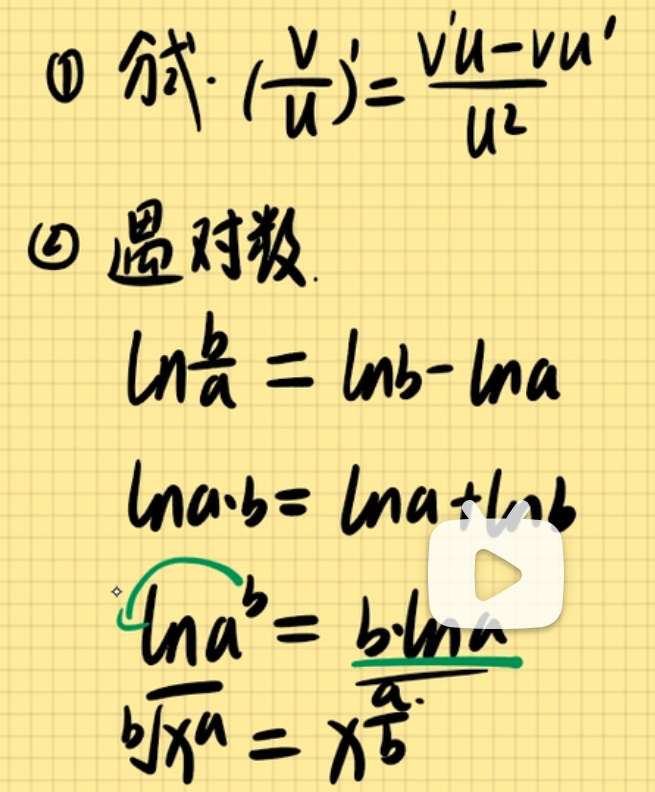 ① 分式. (v/u)' = (v'u - vu')/u²
② 遇对数.
ln b/a = lnb - lna
lna·b = lna + lnb
lnaᵇ = b·lna
ᵇ√xᵃ = x^(a/b)